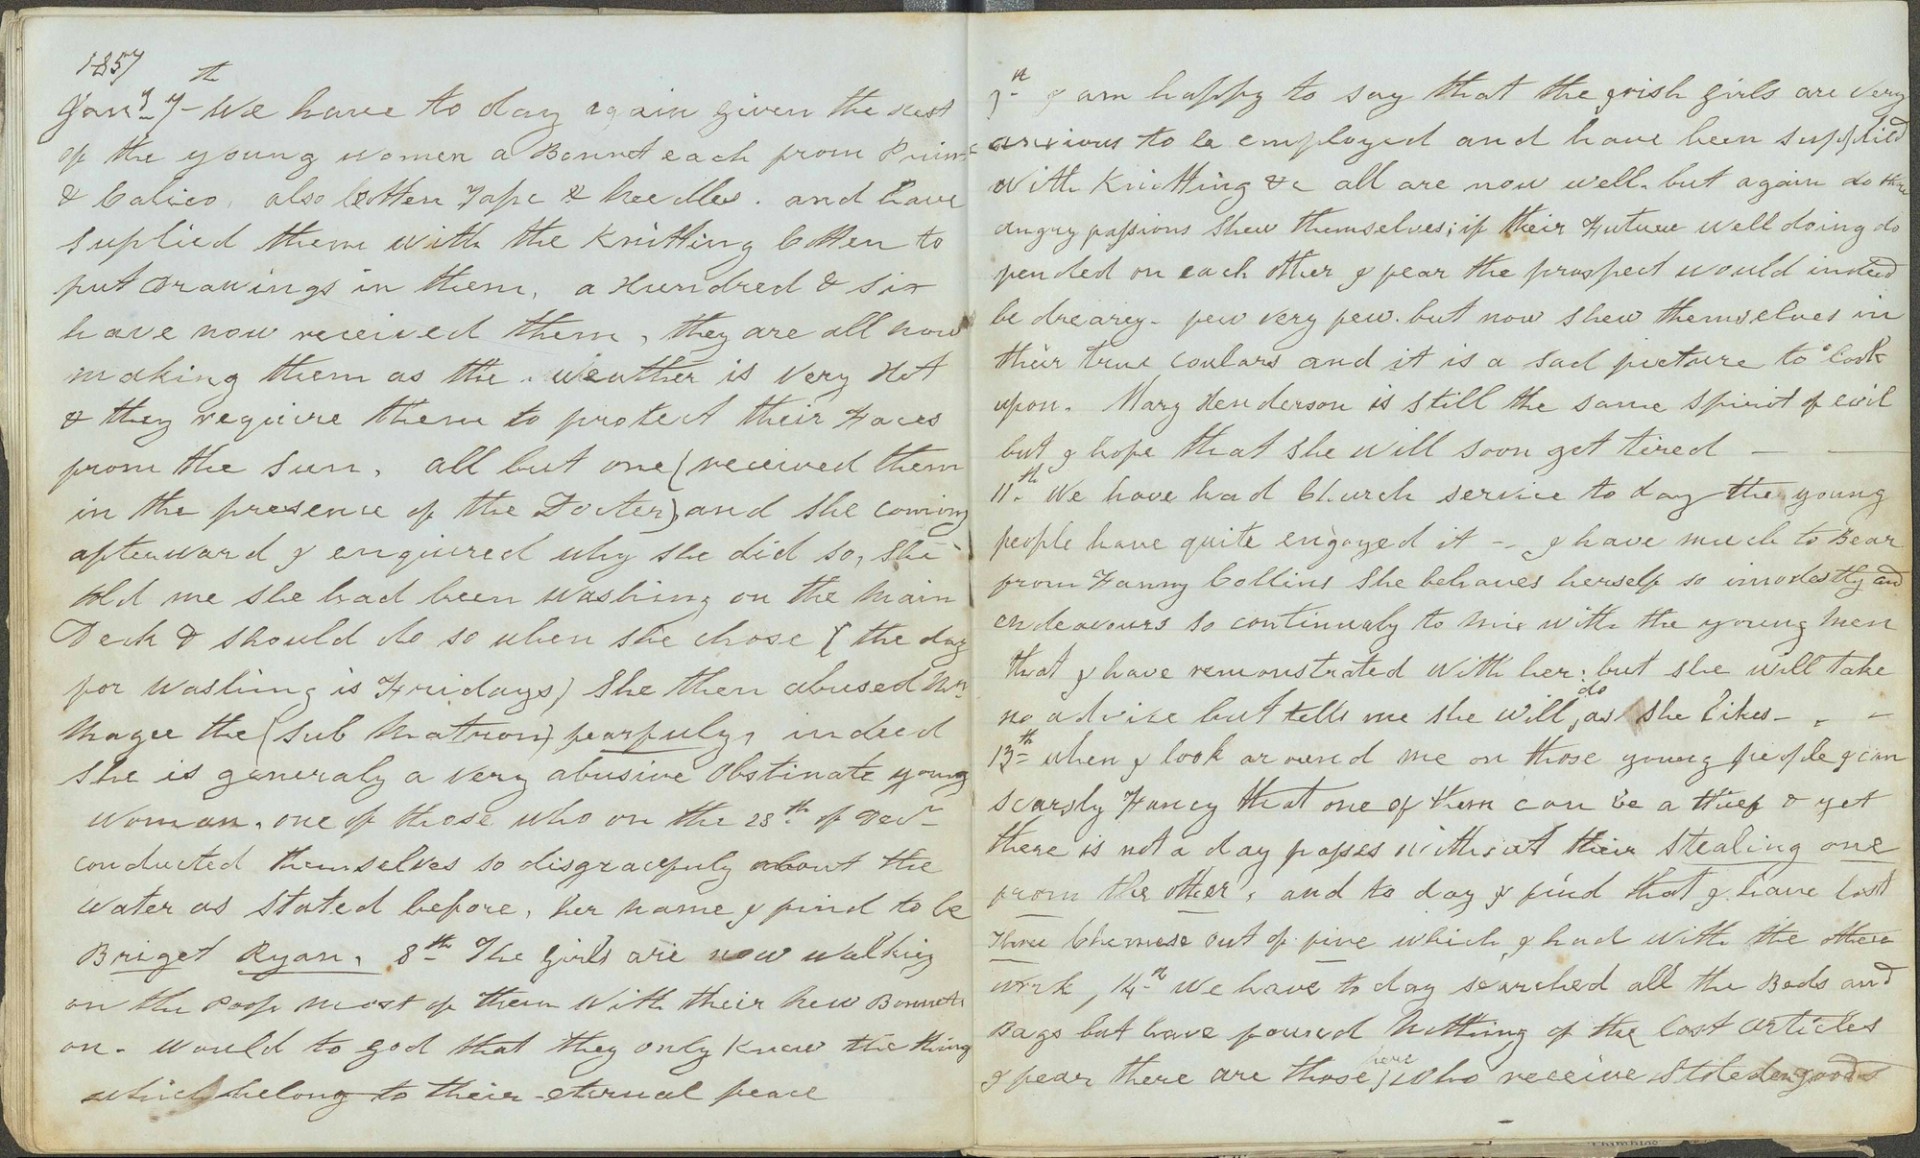 1857
Jany 7th We have to day again given the rest
of the young women a Bonnet each from Print
& Calico. also Cotten Tape & Needles. and have
suplied them with the Knitting Cotten to
put Drawings in them, a Hundred & six
have now received them, they are all now
making them as the weather is very Hot
& they require them to protect their Faces
from the Sun, all but one (received them
in the presence of the Docter) and she coming
afterward I enquired why she did so, she
told me she had been washing on the Main
Deck & should do so when she chose (the day
for washing is Fridays) She then abused Mrs
Magee the (Sub Matron) fearfuly, indeed
she is generaly a very abusive Obstinate young
Woman, one of those who on the 28th of Decr
conducted themselves so disgracefuly about the
Water as stated before, her name I find to be
Briget Ryan, 8th The Girls are now walking
on the Poop most of them With their New Bonnets
on. Would to god that they only knew the things
which belong to their eternal peace
9th I am happy to say that the Irish girls are very
anxious to be employed and have been supplied
With Knitting &c all are now well. but again do the
angry passions shew themselves; if their Future well doing de
pended on each other I fear the prospect would indeed
be drearey. few very few. but now shew themselves in
their true coulars and it is a sad picture to look
upon. Mary Henderson is still the same spirit of evil
but I hope that she will soon get tired —
11th We have had Church service to day the young
people have quite engoyed it — I have much to Bear
from Fanny Collins She behaves herself so imodestly and
endeavours so continualy to mix with the young men
that I have remonstrated with her; but she will take
no advise but tells me she will do as she likes - . -
13th when I look around me on those young people I can
scarsly Fancy that one of them can be a thief & yet
there is not a day passes without their stealing one
from the other, and to day I find that I have lost
Three Chemese out of five which I had with the other
work, 14th We have to day searched all the Beds and
Bags but have found Nothing of the lost articles
I fear there are those here who receive Stoleden goods